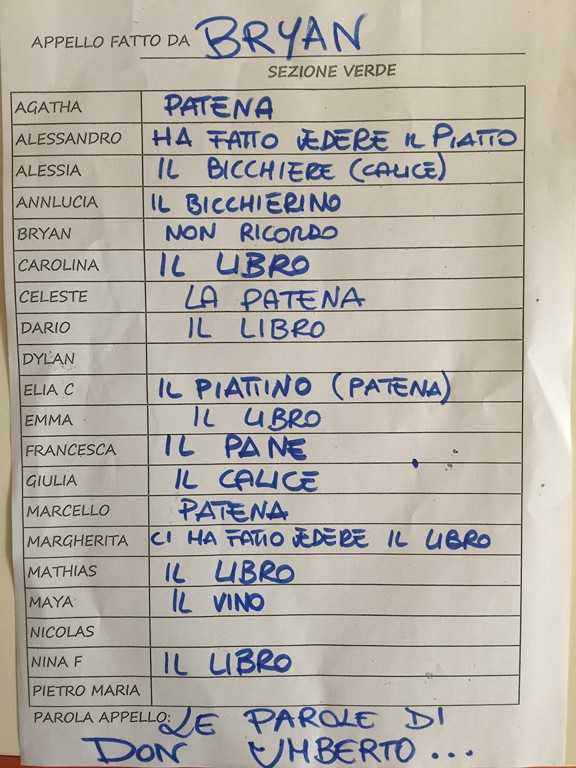 APPELLO FATTO DA BRYAN
SEZIONE VERDE
AGATHA PATENA
ALESSANDRO HA FATTO VEDERE IL PIATTO
ALESSIA IL BICCHIERE (CALICE)
ANNLUCIA IL BICCHIERINO
BRYAN NON RICORDO
CAROLINA IL LIBRO
CELESTE LA PATENA
DARIO IL LIBRO
DYLAN
ELIA C IL PIATTINO (PATENA)
EMMA IL LIBRO
FRANCESCA IL PANE
GIULIA IL CALICE
MARCELLO PATENA
MARGHERITA CI HA FATTO VEDERE IL LIBRO
MATHIAS IL LIBRO
MAYA IL VINO
NICOLAS
NINA F IL LIBRO
PIETRO MARIA
PAROLA APPELLO: LE PAROLE DI
DON UMBERTO...